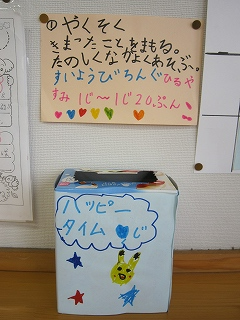 ①やくそく
きまったことをまもる。
たのしくなかよくあそぶ。
すいようびろんぐひるや
すみ 1じ〜1じ20ぷん!
ハッピー
タイム♥じ